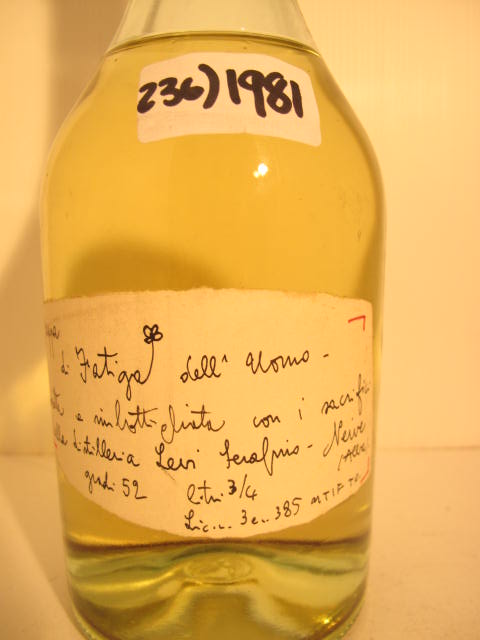 236) 1981
di Fatiga dell' Uomo -
e imbottigliata con i sacrifici
distilleria Levi Serafino - Neive
(Alba)
gradi 52 litri 3/4
Lic. n. 3 e n. 385 MTIF TO